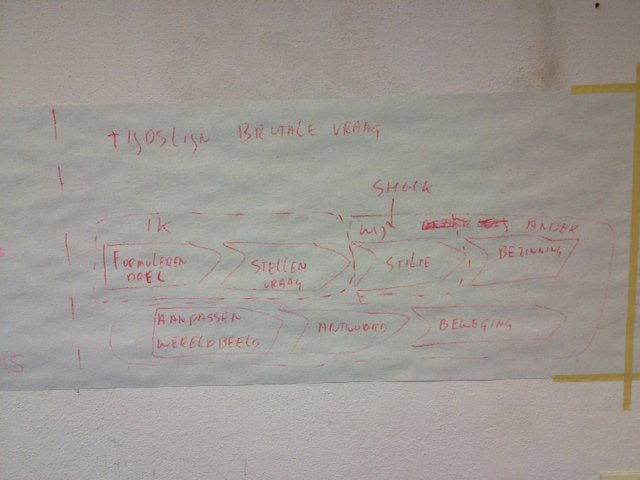 TIJDSLIJN BRUTALE VRAAG
SHOCK
IK
WIJ
ANDER
FORMULEREN
DOEL
STELLEN
VRAAG
STILTE
BEZINNING
AANPASSEN
WERELDBEELD
ANTWOORD
BEWEGING
IS